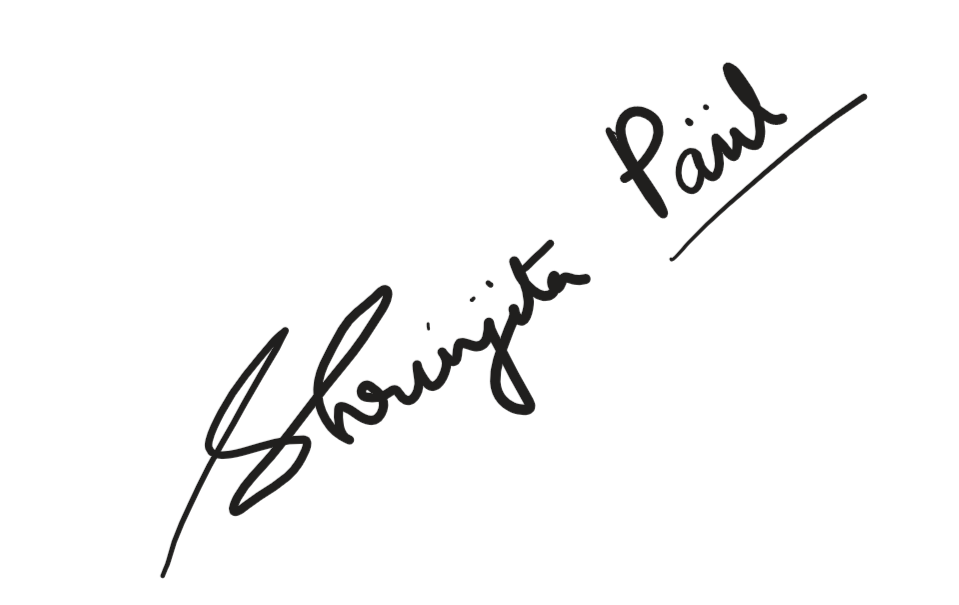 Sherinjita Paül